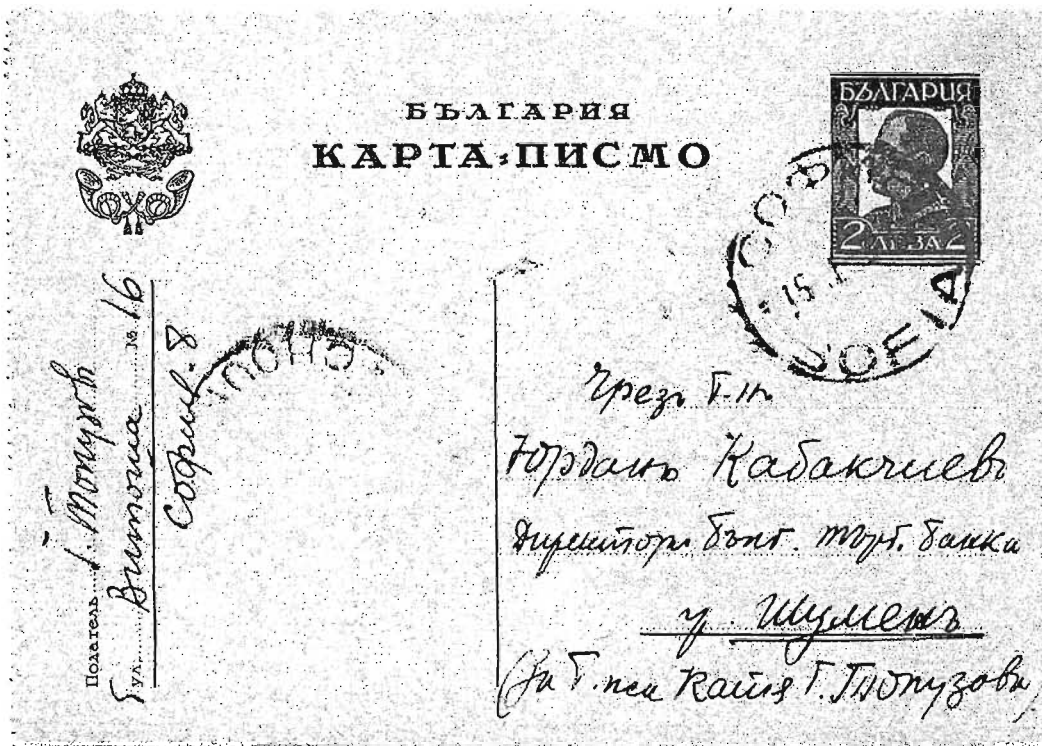 БЪЛГАРИЯ
КАРТА-ПИСМО
БЪЛГАРИЯ
2 ЛЕВА 2
СОФ
15
SOFIA
Податель
Бул. Витоша № 16
София - 8
Чрезъ Г-нъ
Юрданъ Кабакчиевъ
Директоръ Бълг. търг. банка
гр. Шуменъ
(За Г-ца Катя Г. Топузова)